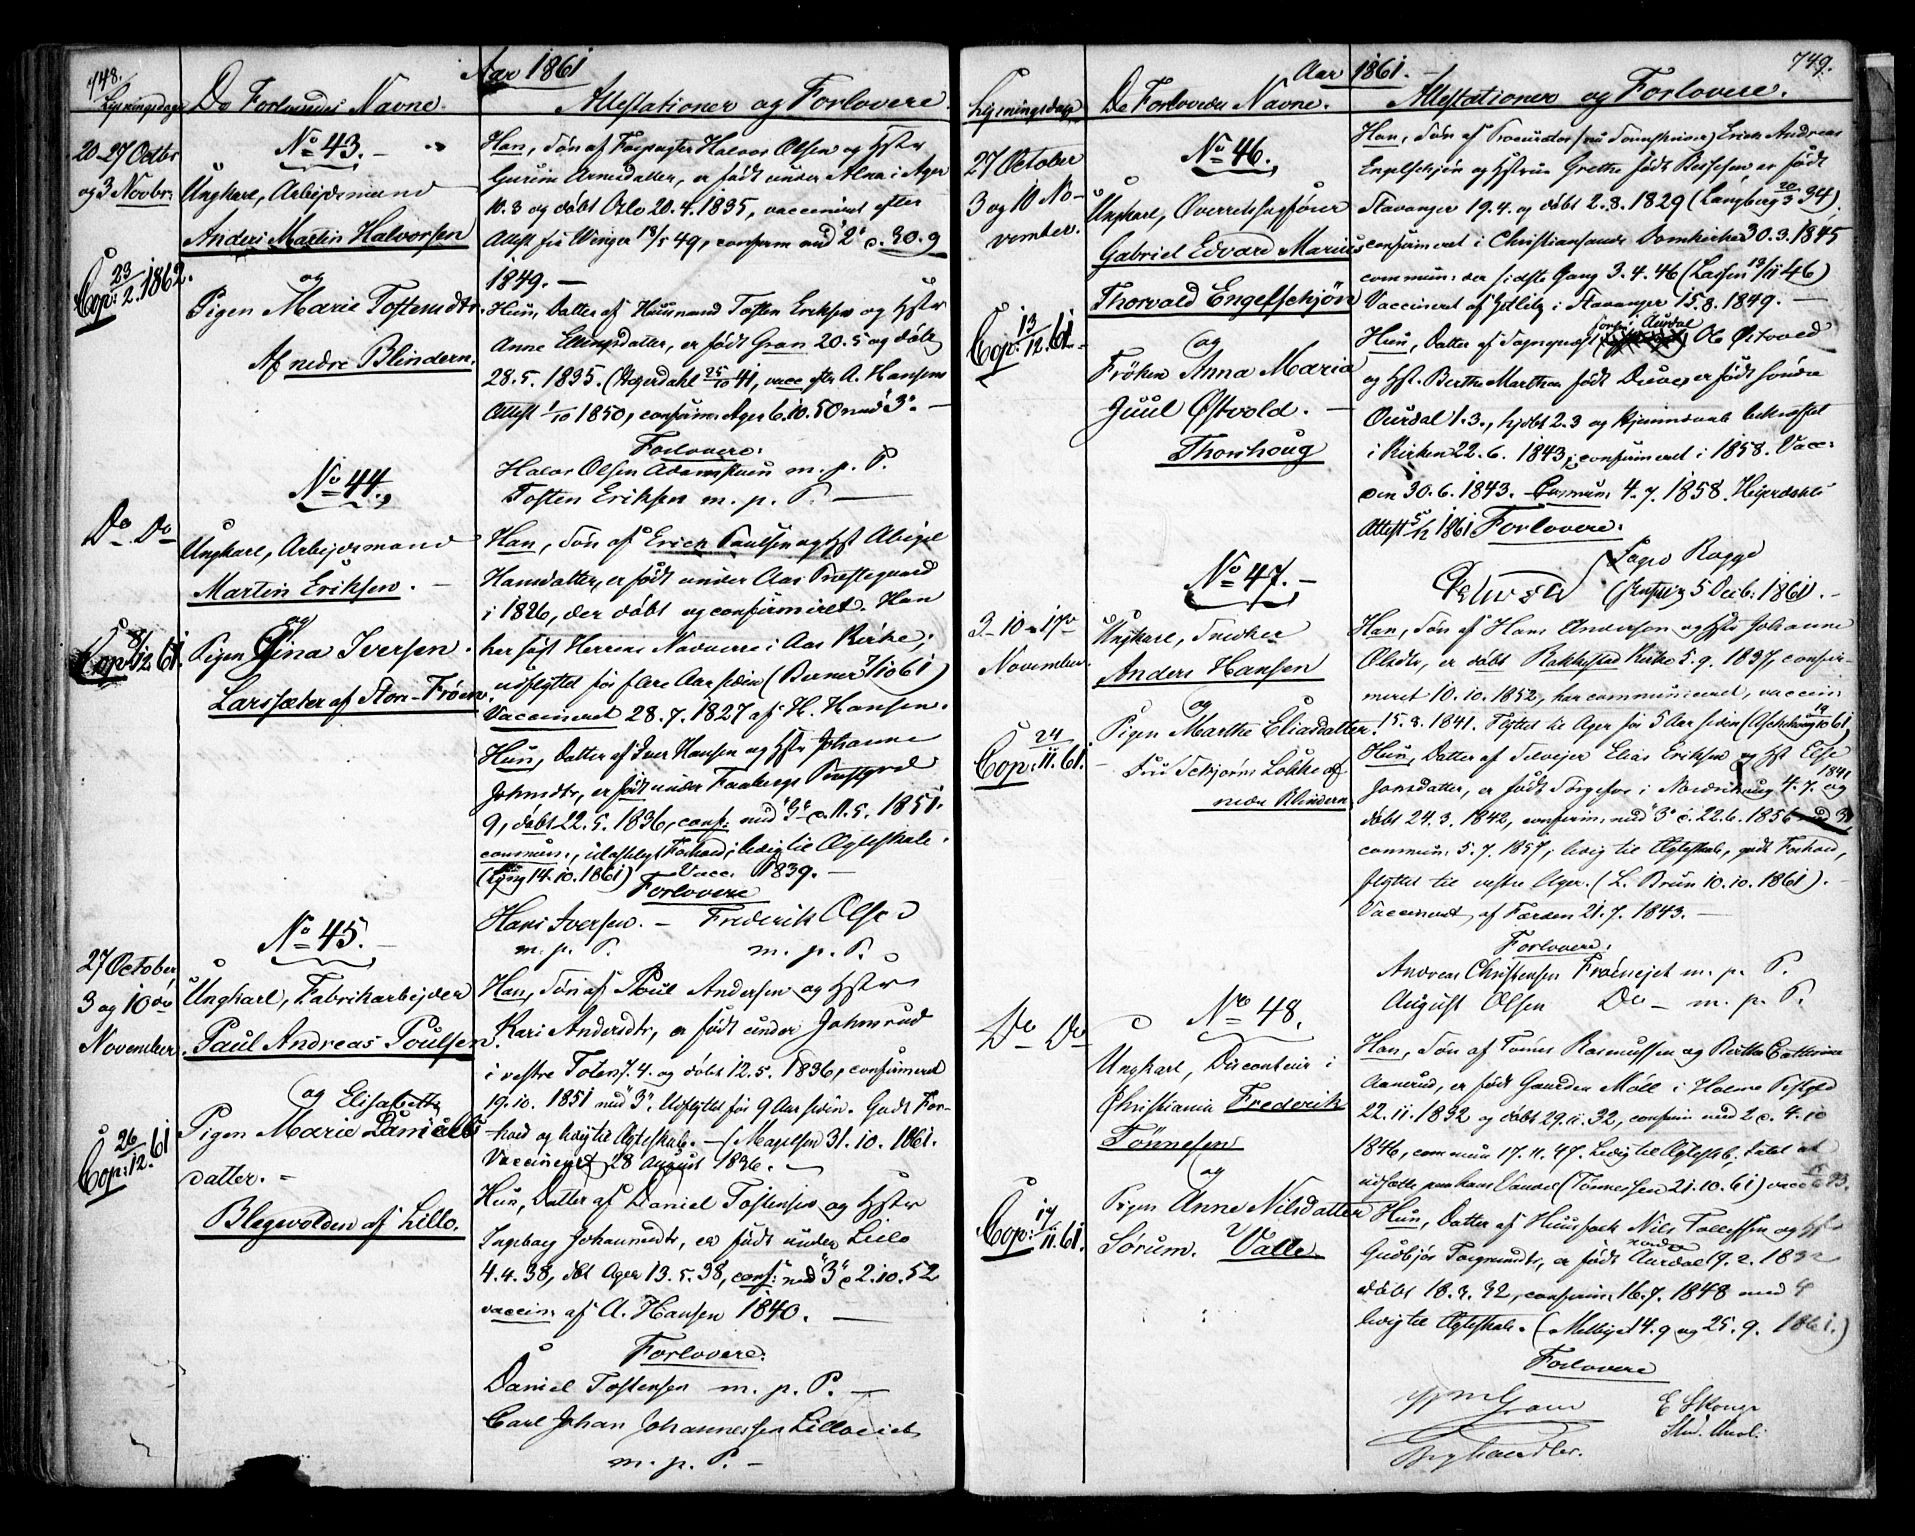 748.
Aar 1861
Lysningsdage
De Forlovedes Navne.
Attestationer og Forlovere.
20-27 Octbr
og 3 Novbr.
No 43.
Ungkarl, Arbeidsmand
Anders Martin Halvorsen
Cop: 23/2. 1862.
og
Pigen Marie Tostensdtr.
Af nedre Blindern.
Han, Søn af Halvor Olsen og Hstr
Gurine Arnesdatter, er født under Alna i Ager
10.3 og døbt Oslo 20.4.1835, vaccineret efter
Attest fra Wenger 18/5 49, confirm med 2 c. 30.9
1849. —
Hun, Datter af Huusmand Tosten Eriksen og Hstr
Anne datter, er født Gran 20.5 og døbt
28.5. 1835. (Hegerdahl 25/10 41, vacc efter A. Hansens
Attest 1/10 1850, confirm: Ager 6.10.50 med "3". —
Forlovere:
Halvor Olsen Adamstuen m. p. P.
Tosten Eriksen m. p. P. —
Do Do
No 44.
Ungkarl, Arbejdsmand
Martin Eriksen. —
Cop: 8/12 61.
og
Pigen Gina Iversen.
Larssæter af Stor-Frøen
Han, Søn af Erick Paulsen og Hst Abigel
Hansdatter, er født under Aas Præstegaard
i 1826, der døbt og confirmeret. Han
har søgt Herrens Nadvere i Aas Kirke;
udflyttet for flere Aar siden (Berner 7/10 61)
Vaccineret 28.7.1827 af H. Hansen.
Hun, Datter af Iver Hansen og Hstr Johanne
Johnsdtr, er født under Faabergs Præstgjeld
9, døbt 22.5. 1836, conf: med "3" c. 11.5. 1851.
commun:, Forhold, ledig til Ægteskab.
14.10.1861) Vacc. 1839. —
Forlovere
Hans Iversen. — Frederik Olsen
m. p. P. m. p. P.
27 October,
3 og 10de
November.
No 45. —
Ungkarl, Fabrikarbejder
Paul Andreas Poulsen.
og Elisabeth
Pigen Marie Daniels
datter. =
Cop: 26/12. 61
Blegevolden af Lillo.
Han, Søn af Poul Andersen og Hstr
Kari Andersdtr, er født under Johnsrud
i vestre Toten 7.4. og døbt 12.5. 1836, confirmeret
19.10. 1851 med "3". Udflyttet for 9 Aar siden. Godt For-
hold og ledig til Ægteskab. — 31.10. 1861.
Vaccineret 28 August 1836. —
Hun, Datter af Daniel Tostensen og Hstr
Ingeborg Johannesdtr, er født under Lillo
4.4.38, dbt Ager 13.5.38, conf: med "3" c 2.10.52
vaccin: af A. Hansen 1840. —
Forlovere:
Daniel Tostensen m. p. P. —
Carl Johan Johannessen
m. p. P. —
749.
Aar 1861. —
Lysningsdage
De Forlovedes Navne.
Attestationer og Forlovere.
27 October
3 og 10 No-
vember.
No 46.
Ungkarl, Overretssagfører
Gabriel Edvard Marius
Thorvald Engelschjøn
Cop: 13/12. 61.
og
Frøken Anna Maria
Juul Østvold. —
Thorshoug
Han, Søn af Procurator (nu Sorenskriver) Erick Andreas
Engelschjøn og Hstrue Grethe født er født
Stavanger 19.4. og døbt 2.8. 1829 (Langberg 20/3 34).
confirmeret i Christiansands Domkirke 30.3. 1845
commun: der sidste Gang 3.4.46 (Lassen 13/11 46)
Vaccineret af i Stavanger 15.8. 1849. —
Hun, Datter af Sogneprest Søndre Aurdal Ole Østvold
og Hst. Berthe Marthea født er født Søndre
Aurdal 1.3., hjdbt 2.3 og Hjemmedaab bekræftet
i Kirken 22.6. 1843, confirmeret i 1858. Vacc:
den 30.6. 1843. — Commun: 4.7. 1858. Hegerdahls
Attest 5/12 1861 Forlovere:
5 Decb. 1861. —
3-10-17de
November.
No 47. —
Ungkarl, Snedker
Anders Hansen
Cop: 24/11. 61. —
og
Pigen Marthe Eliasdatter.
Løkke af
nedre Blindern
Han, Søn af Hans Anderson og Hstr Johanne
Olsdtr, er døbt Bakkestad Kirke 5.9. 1837, confir-
meret 10.10. 1852, har communiceret, vaccin:
15.8. 1841. Flyttet til Ager for 5 Aar siden (Aschehoug 19/10 61)
Hun, Datter af Selvejer Elias Eriksen og Hst Else
Jonsdatter, er født i Nordrehoug 4.7. 1841 og
døbt 24.3. 1842, confirm: med "3" c. 22.6. 1856
commun: 5.7. 1857, ledig til Ægteskab, godt Forhold,
flyttet til vestre Ager. (L. Brun 10.10. 1861). —
Vaccineret af Færden 21.7. 1843. —
Forlovere:
Andreas Christensen Frøenejet m. p. P.
August Olsen Do — m. p. P.
Do Do
No 48.
Ungkarl, Disconteur i
Christiania Frederik
Tønnesen
og
Cop: 17/11. 61.
Pigen Anne Nilsdatter
Sørum. Valle
Han, Søn af Tønnes Rasmussen og Berthe Cathrine
Aanerud, er født Gaarden Moll i Holme Prestgjeld
22.11. 1832 og døbt 29.11.32, confirm med 2 c. 4.10
1846, commun 17.11.47. Ledig til Ægteskab, Intet at
udsætte paa hans Vandel (Tønnessen 21.10.61) vacc
Hun, Datter af Huusfolk Nils Tollefsen og Hstr
Gudbjør Torgrimsdtr, er født nordre Aurdal 19.2. 1832
døbt 18.3.32, confirm: 16.7. 1848 med 4
ledig til Ægteskab. — (Melbye 14.9 og 25.9. 1861.)
Forlovere
Gram